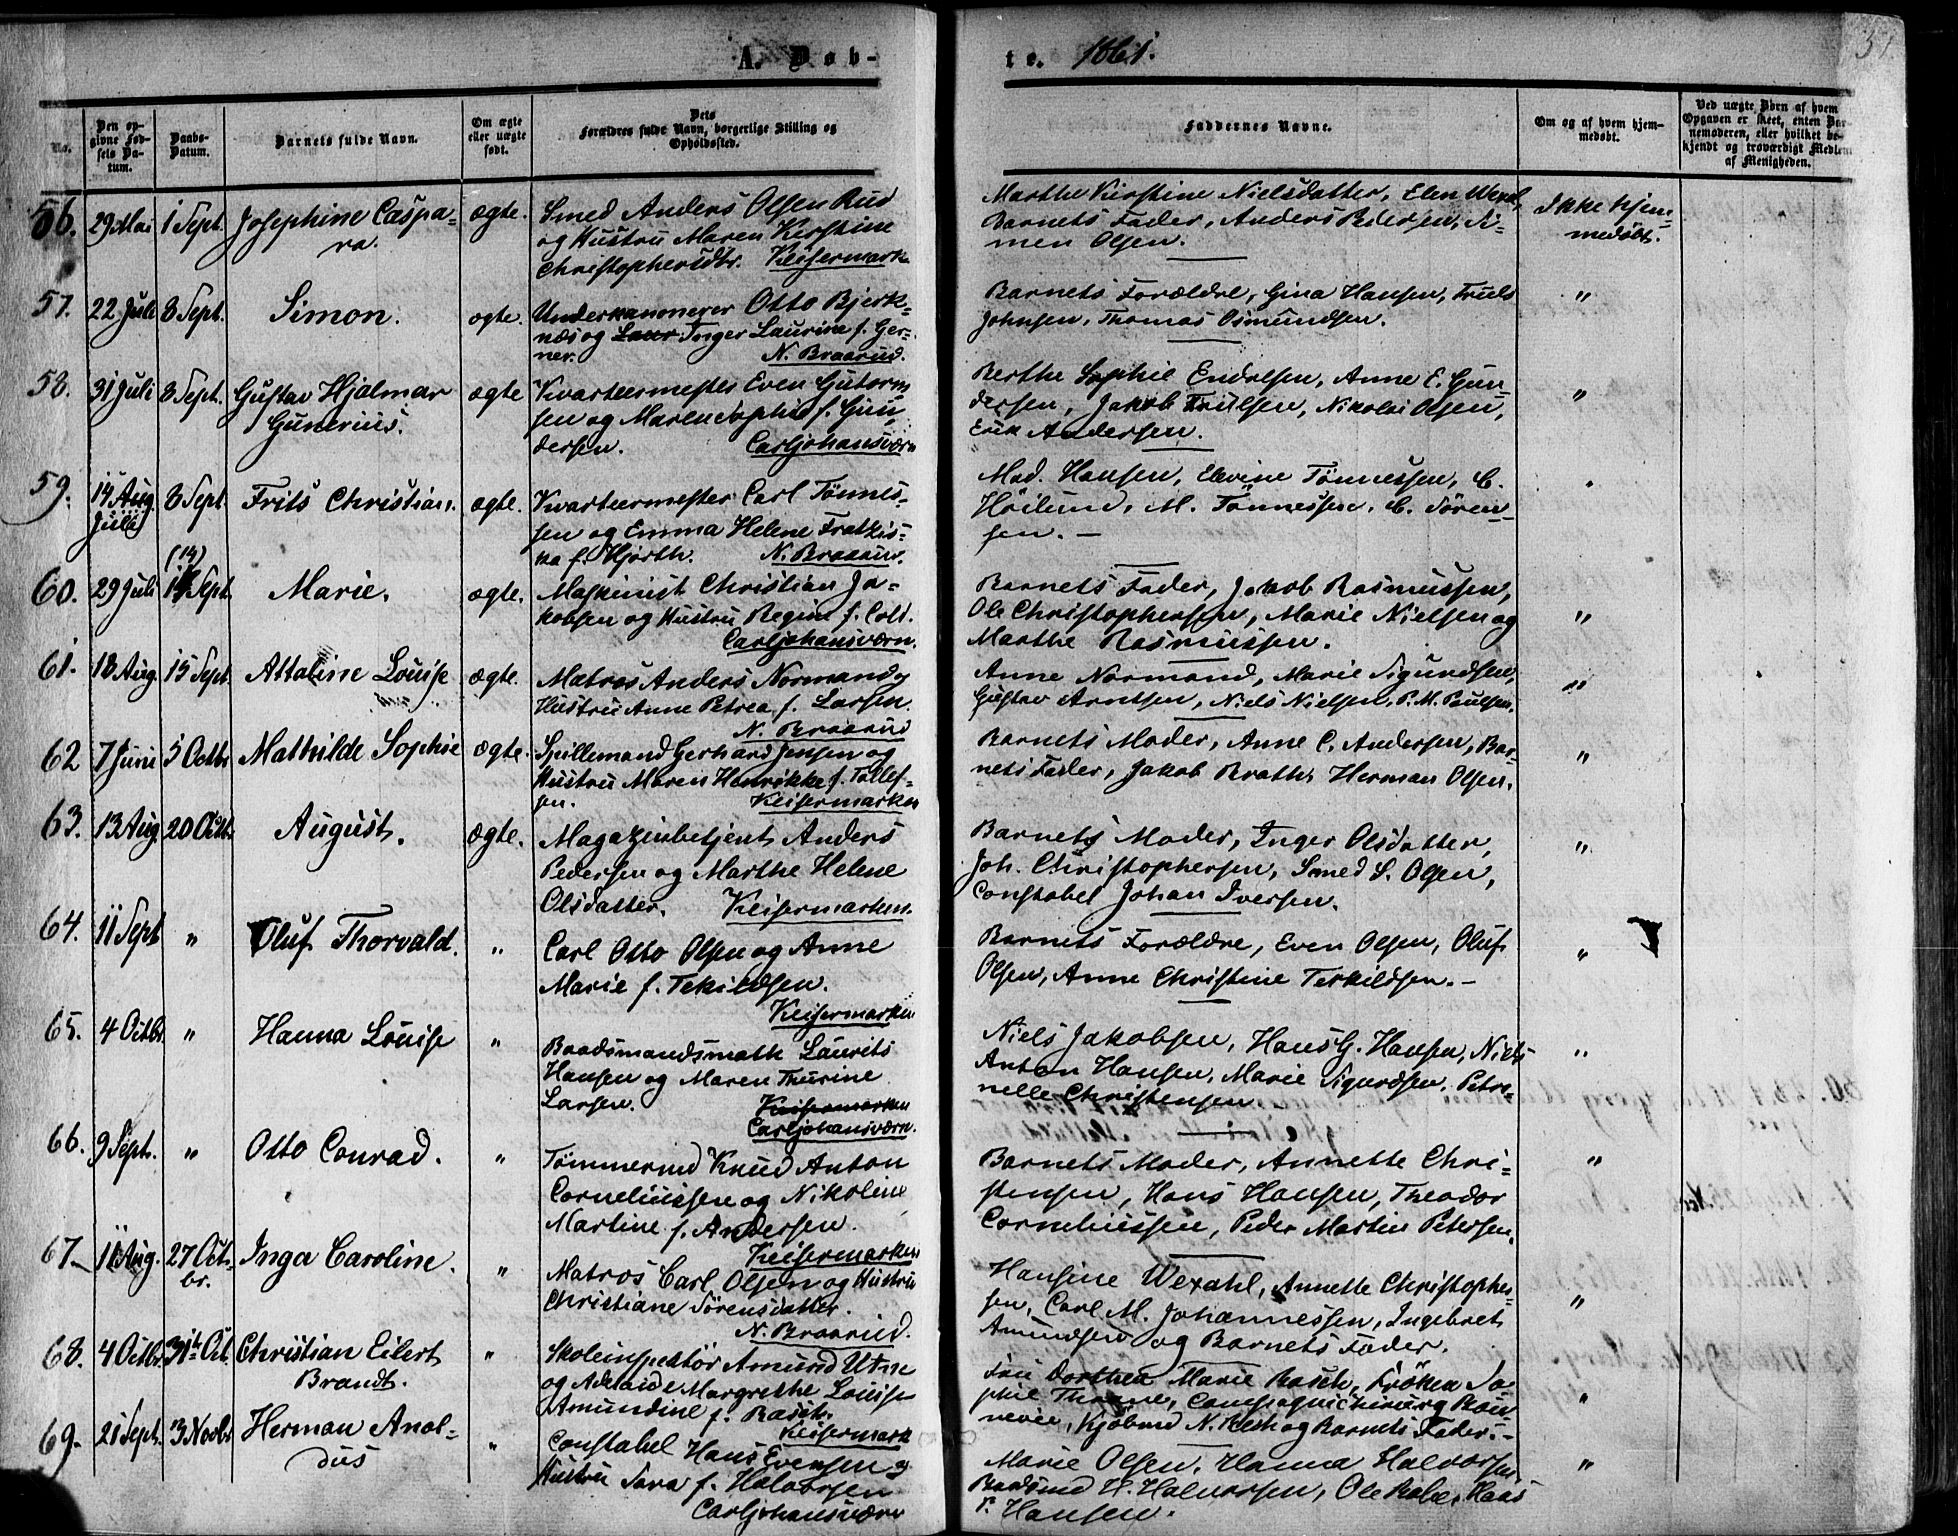 A. Døb-
te. 1861.
51.
No.
Den op-
givne Fød-
sels Da-
tum.
Daabs-
Datum.
Barnets fulde Navn.
Om ægte
eller uægte
født.
Dets
Forældres fulde Navn, borgerlige Stilling og
Opholdssted.
Faddernes Navne.
Om og af hvem hjem-
medøbt.
Ved uægte Børn af hvem
Opgaven er skeet, enten Bar-
nemoderen, eller hvilket be-
kjendt og troværdigt Medlem
af Menigheden.
56. 29 Mai 1 Sept. Josephine Caspa-
ra. ægte.
Smed Anders Olsen Rud
og Hustru Maren Kirstine
Christophersdtr. Keisermark
Marthe Kirstine Nielsdatter, Elen
Barnets Fader, Anders Pedersen, Si-
men Olsen.
Ikke hjem-
medøbt.
57. 22 Juli 8 Sept. Simon. ægte.
Underkanoneer Otto Bjerk-
næs og Inger Laurine f. Ger-
ner. N. Braarud.
Barnets Forældre, Gina Hansen, Truls
Johnsen, Thomas Osmundsen.
"
58. 31 Juli 8 Sept. Gustav Hjalmar
Gunerius. ægte
Kvarteermester Even Gutorm-
sen og Maren Sophie f. Gun-
dersen. Carljohansværn
Berthe Sophie Endresen, Anne E. Gun-
dersen, Jakob Trulsen, Nikolai Olsen,
Erik Andersen.
"
59. 14 Aug.
Juli 8 Sept. Frits Christian. ægte.
Kvarteermester Carl Tønnes-
sen og Emma Helene Fratzis-
ka f. Hjorth. N. Braarud.
Mad. Hansen, Elevine Tønnessen, C.
Høilund, M. Tønnessen, C. Søren-
sen. –
60. 29 Juli (14)
Sept. Marie. ægte.
Maskinist Christian Ja-
kobsen og Hustru Regine f. Colt.
Carljohansværn.
Barnets Fader, Jakob Rasmussen,
Ole Christophersen, Marie Nielsen og
Marthe Rasmussen.
"
61. 18 Aug. 15 Sept. Attaline Louise ægte.
Matros Anders Normand og
Hustru Anne Petrea f. Larsen.
N. Braarud
Anne Normand, Marie Sigundsen,
Gustav Arntsen, Niels Nielsen, P. M. Paulsen.
"
62 7 Juni 5 Octbr Mathilde Sophie ægte.
Spillemand Gerhard Jensen og
Hustru Maren Henrikke f. Tollef-
sen. Keisermarken
Barnets Moder, Anne C. Andersen, Bar-
nets Fader, Jakob Brath, Herman Olsen.
"
63. 13 Aug. 20 Octb. August. ægte.
Magazinbetjent Anders
Pedersen og Marthe Helene
Olsdatter. Keisermarken.
Barnets Moder, Inger Olsdatter,
Joh. Christophersen, Smed S. Olsen,
Constabel Johan Iversen.
"
64. 11 Sept " Oluf Thorvald. "
Carl Otto Olsen og Anne
Marie f. Tekildsen.
Keisermarken
Barnets Forældre, Even Olsen, Oluf
Olsen, Anne Christine Terkildsen. –
"
65. 4 Octbr " Hanna Louise "
Baadsmandsmath Laurits
Hansen og Maren Thurine
Larsen. Keisermarken
Carljohansværn.
Niels Jakobsen, Hans G. Hansen, Niels
Anton Hansen, Marie Sigurdsen, Petro-
nelle Christensen.
"
66. 9 Sept. " Otto Conrad. "
Tømmermd Knud Anton
Corneliussen og Nikoline
Martine f. Andersen.
Keisermarken
Barnets Moder, Annette Chri-
stensen, Hans Hansen, Theodor
Corneliussen, Peder Martin Petersen.
"
67. 11 Aug. 27 Oct-
br. Inga Caroline. "
Matros Carl Olsen og Hustru
Christiane Sørensdatter.
N. Braarud.
Hansine Wexahl, Annette Christopher-
sen, Carl M. Johannessen, Ingebret
Amundsen og Barnets Fader.
"
68. 4 Octbr 31te Oct. Christian Eilert
Brandt. "
Skoleinspektør Amund Utne
og Adelaide Margrethe Louise
Amundine f. Rasch.
Keisermark
Fru Dorthea Marie Rasch, Frøken So-
phie Thorne, Compagnichirurg Bon-
nevie, Kjøbmd N. og Barnets Fader. –
"
69. 21 Sept. 3 Novbr Herman Anol-
dus "
Constabel Hans Evensen og
Hustru Sara f. Halvorsen
Carljohansværn
Marie Olsen, Hanna Halvorsen
Baadsmd H. Halvorsen, Ole, Hans
P. Hansen.
"